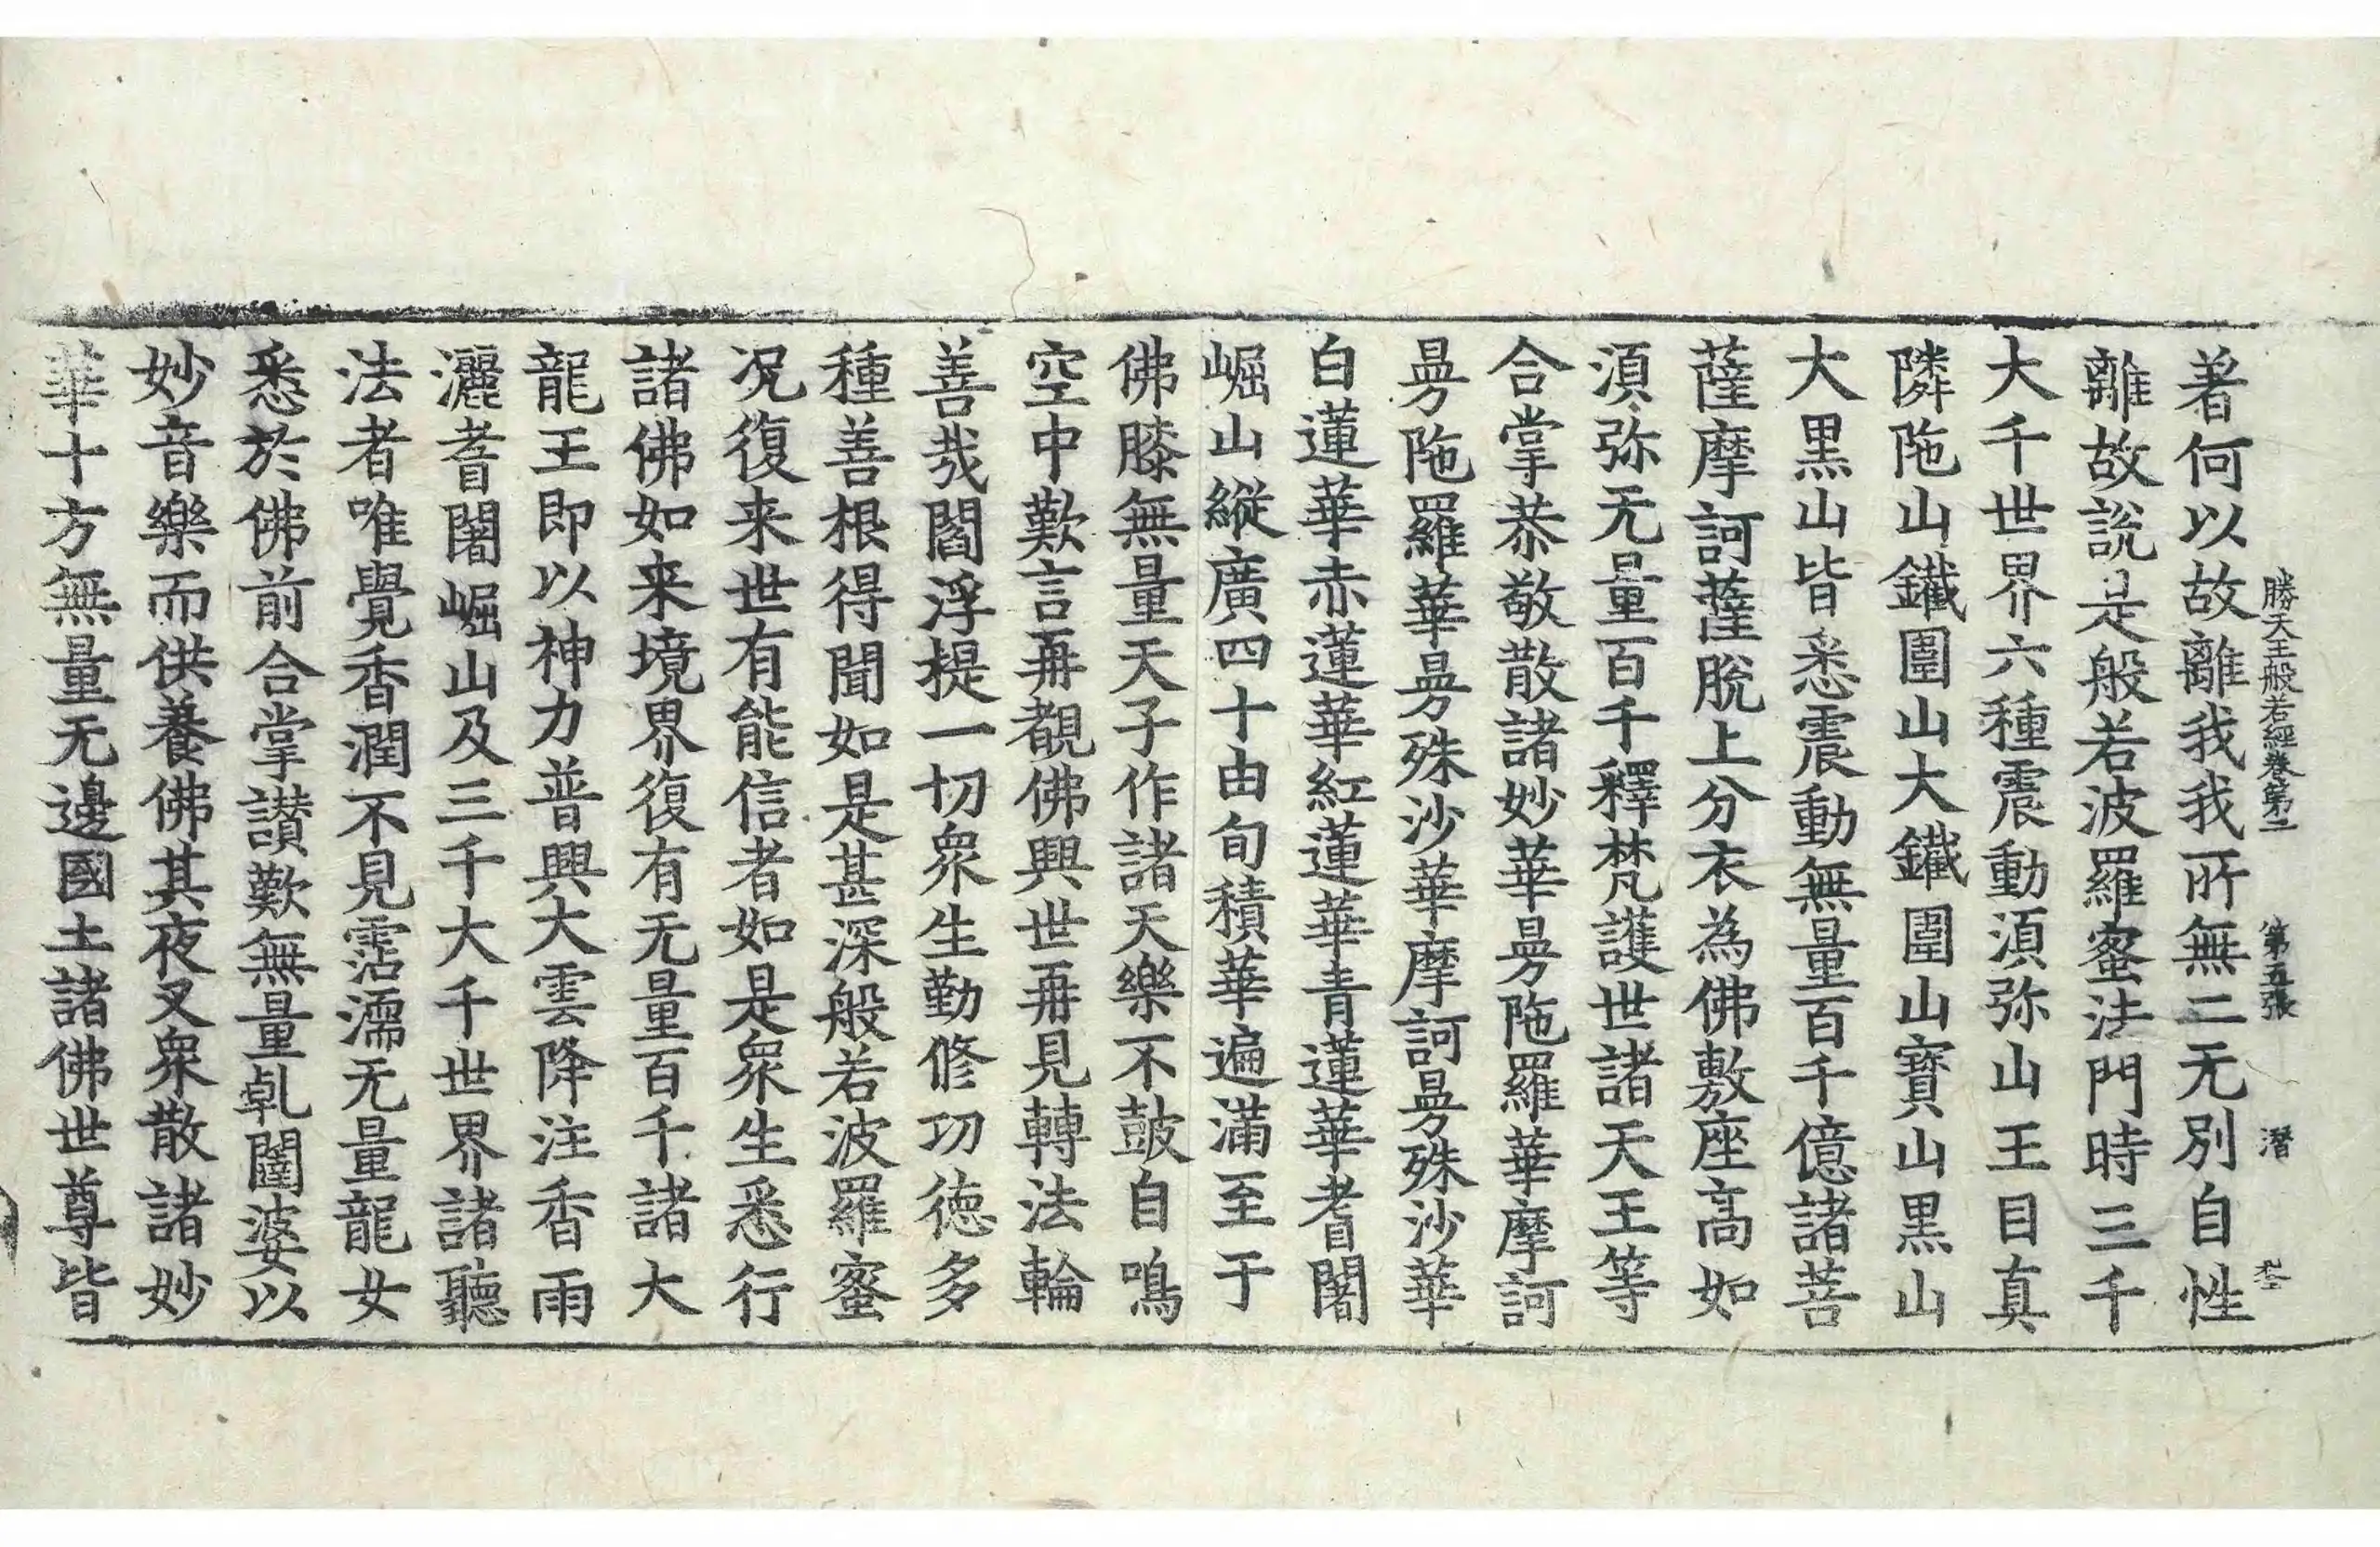 勝天王般若經卷第二　第五張　潛
著何以故離我我所無二无別自性
離故說是般若波羅蜜法門時三千
大千世界六種震動須弥山王目真
隣陁山鐵圍山大鐵圍山寶山黒山
大黒山皆悉震動無量百千億諸菩
薩摩訶薩脫上分衣為佛敷座高如
須弥无量百千釋梵護世諸天王等
合掌恭敬散諸妙華曼陁羅華摩訶
曼陁羅華曼殊沙華摩訶曼殊沙華
白蓮華赤蓮華紅蓮華青蓮華耆闍
崛山縱廣四十由旬積華遍滿至于
佛膝無量天子作諸天樂不鼓自鳴
空中歎言再覩佛興世再見轉法輪
善哉閻浮提一切衆生勤修功徳多
種善根得聞如是甚深般若波羅蜜
况復来世有能信者如是衆生悉行
諸佛如来境界復有无量百千諸大
龍王即以神力普興大雲降注香雨
灑耆闍崛山及三千大千世界諸聽
法者唯覺香潤不見霑濡无量龍女
悉於佛前合掌讃歎無量乹闥婆以
妙音樂而供養佛其夜叉衆散諸妙
華十方無量无邊國土諸佛世尊皆